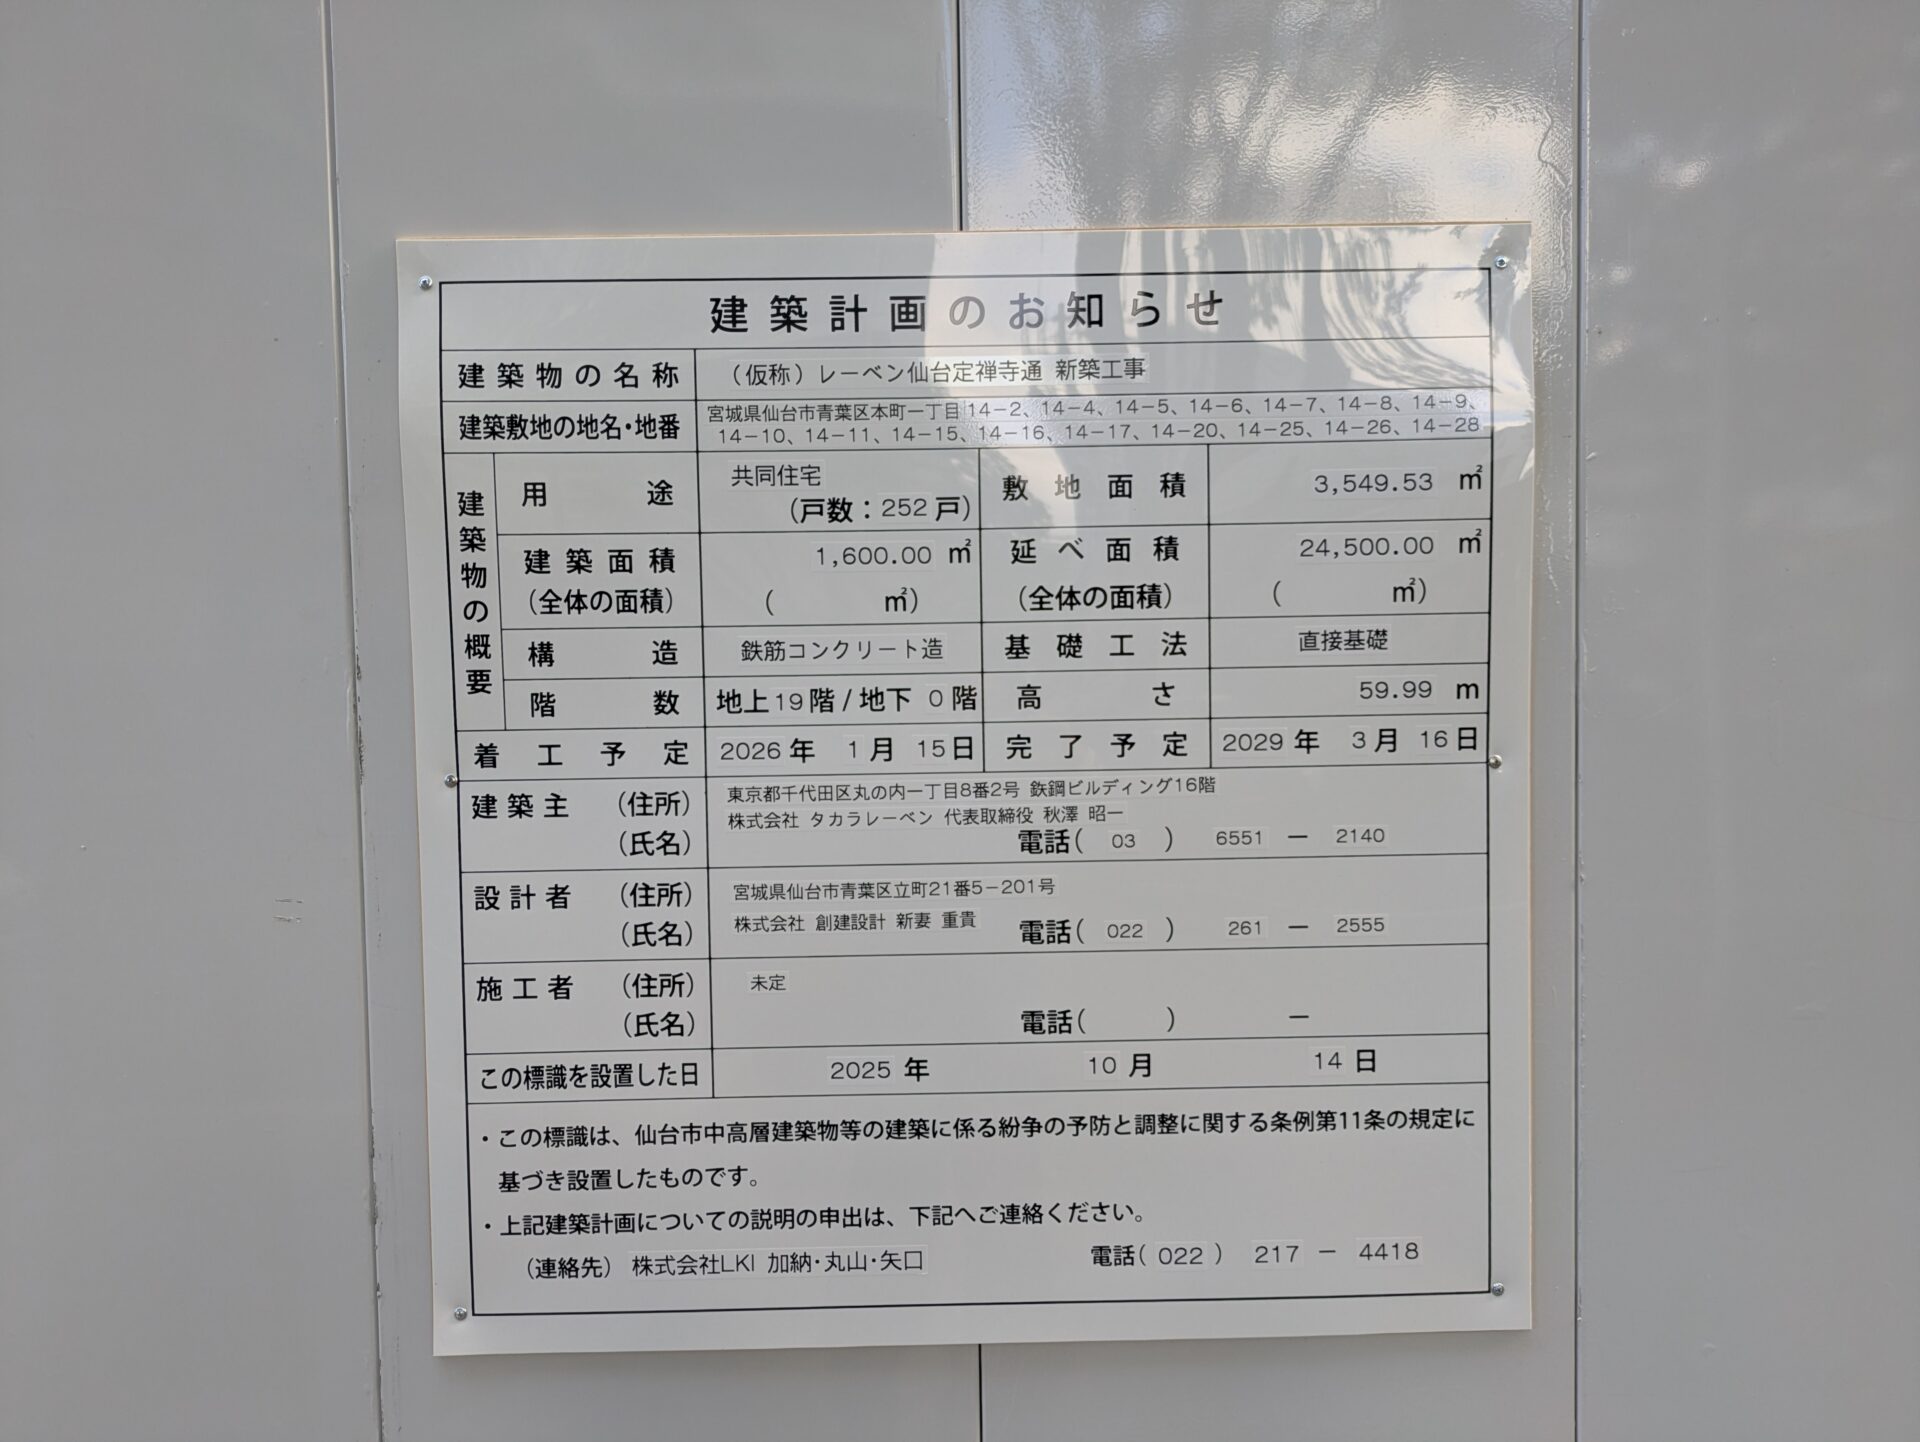 建築計画のお知らせ
建築物の名称 （仮称）レーベン仙台定禅寺通 新築工事
建築敷地の地名・地番 宮城県仙台市青葉区本町一丁目14－2、14－4、14－5、14－6、14－7、14－8、14－9、
14－10、14－11、14－15、14－16、14－17、14－20、14－25、14－26、14－28
建築物の概要
用途 共同住宅
（戸数：252戸）
敷地面積 3,549.53 ㎡
建築面積 1,600.00 ㎡
（全体の面積） （ ㎡）
延べ面積 24,500.00 ㎡
（全体の面積） （ ㎡）
構造 鉄筋コンクリート造 基礎工法 直接基礎
階数 地上19階/地下 0階 高さ 59.99 m
着工予定 2026年 1月 15日 完了予定 2029年 3月 16日
建築主 （住所） 東京都千代田区丸の内一丁目8番2号 鉄鋼ビルディング16階
株式会社 タカラレーベン 代表取締役 秋澤 昭一
（氏名） 電話（ 03 ） 6551 － 2140
設計者 （住所） 宮城県仙台市青葉区立町21番5－201号
（氏名） 株式会社 創建設計 新妻 重貴 電話（ 022 ） 261 － 2555
施工者 （住所） 未定
（氏名） 電話（ ） －
この標識を設置した日 2025 年 10 月 14 日
・この標識は、仙台市中高層建築物等の建築に係る紛争の予防と調整に関する条例第11条の規定に
基づき設置したものです。
・上記建築計画についての説明の申出は、下記へご連絡ください。
（連絡先） 株式会社LKI 加納・丸山・矢口 電話（ 022 ） 217 － 4418